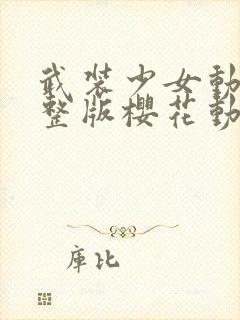 武裝少女動
整版櫻花動
庫比